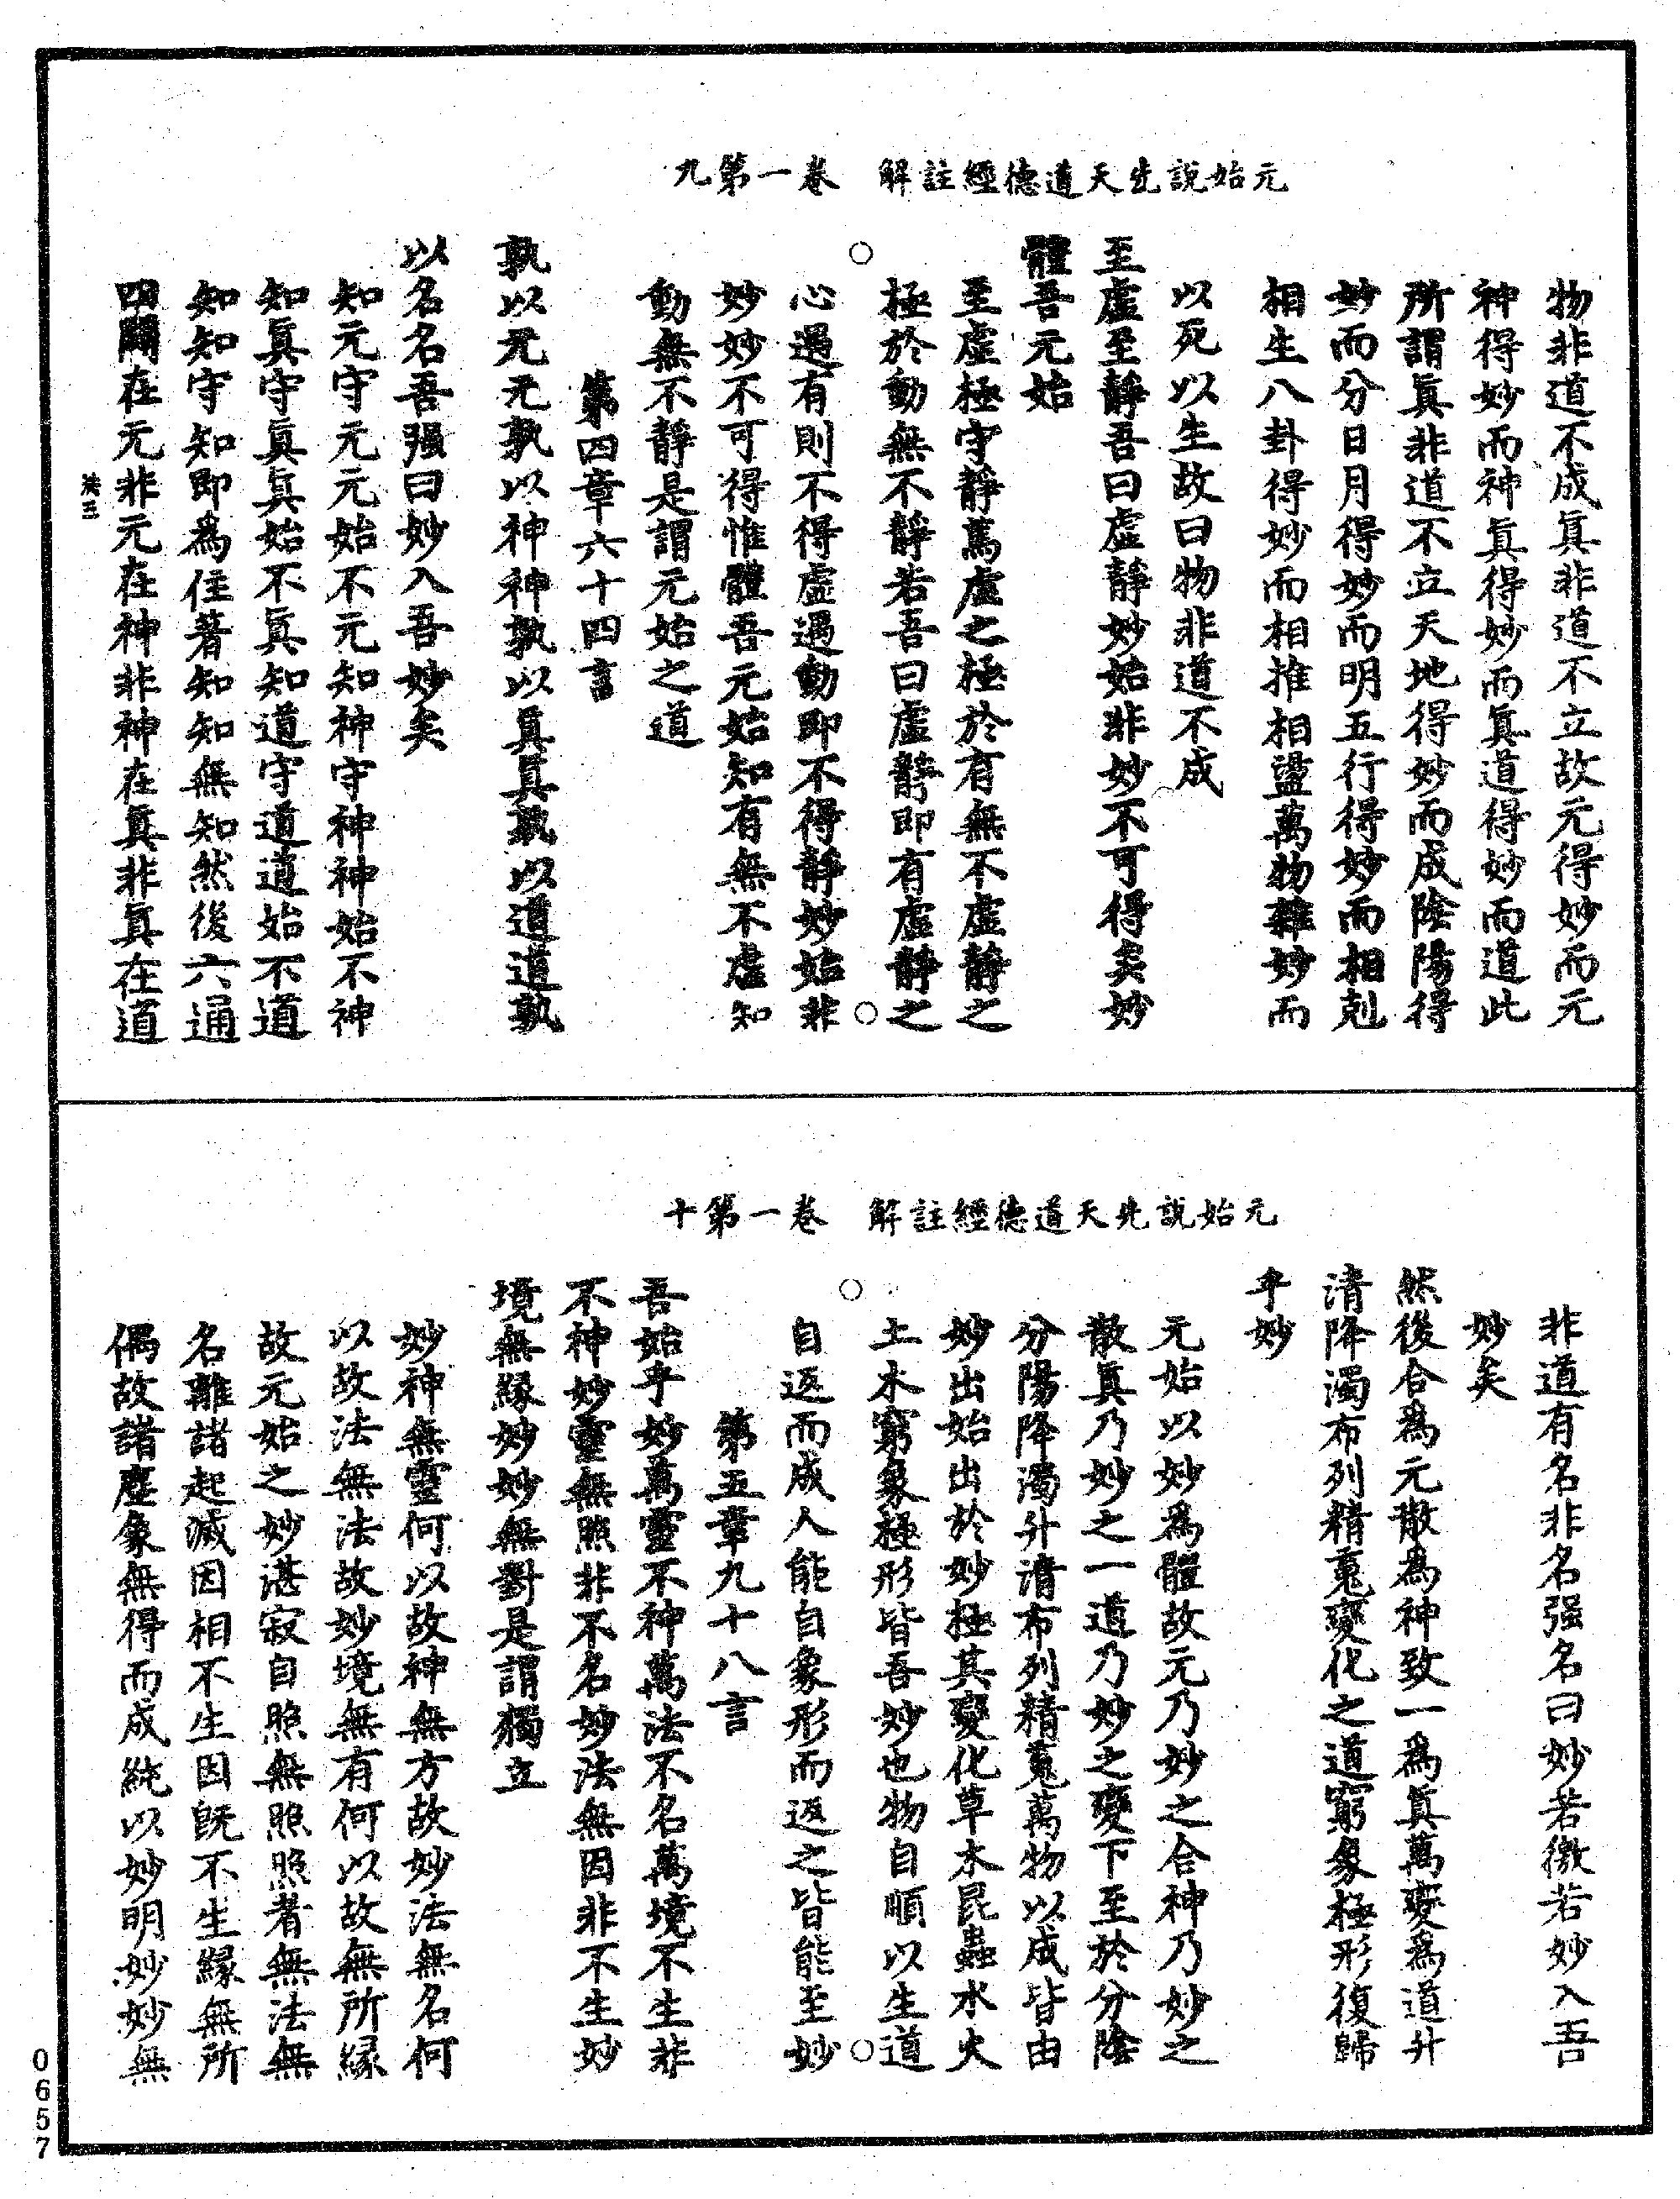 元始說先天道德經註解　卷一第九
物非道不成真非道不立故元得妙而元
神得妙而神真得妙而真道得妙而道此
所謂真非道不立天地得妙而成陰陽得
妙而分日月得妙而明五行得妙而相剋
相生八卦得妙而相推相盪萬物雜妙而
以死以生故曰物非道不成
至虛至靜吾曰虛靜妙始非妙不可得矣妙
體吾元始
至虛極守靜篤虛之極於有無不虛靜之
極於動無不靜若吾曰虛靜即有虛靜之
心過有則不得虛過動即不得靜妙始非
妙妙不可得惟體吾元始知有無不虛知
動無不靜是謂元始之道
第四章六十四言
孰以元元孰以神神孰以真真孰以道道孰
以名名吾强曰妙入吾妙矣
知元守元元始不元知神守神神始不神
知真守真真始不真知道守道道始不道
知知守知即為住著知知無知然後六通
四闢在元非元在神非神在真非真在道
元始說先天道德經註解　卷一第十
非道有名非名强名曰妙若徼若妙入吾
妙矣
然後合為元散為神致一為真萬變為道升
清降濁布列精䰟變化之道窮象極形復歸
乎妙
元始以妙為體故元乃妙之合神乃妙之
散真乃妙之一道乃妙之變下至於分陰
分陽降濁升清布列精䰟萬物以成皆由
妙出始出於妙極其變化草木昆蟲水火
土木窮象極形皆吾妙也物自順以生道
自返而成人能自象形而返之皆能至妙
第五章九十八言
吾始乎妙萬靈不神萬法不名萬境不生非
不神妙靈無照非不名妙法無因非不生妙
境無緣妙妙無對是謂獨立
妙神無靈何以故神無方故妙法無名何
以故法無法故妙境無有何以故無所緣
故元始之妙湛寂自照無照照者無法無
名離諸起滅因相不生因既不生緣無所
偶故諸塵象無得而成純以妙明妙妙無
0657